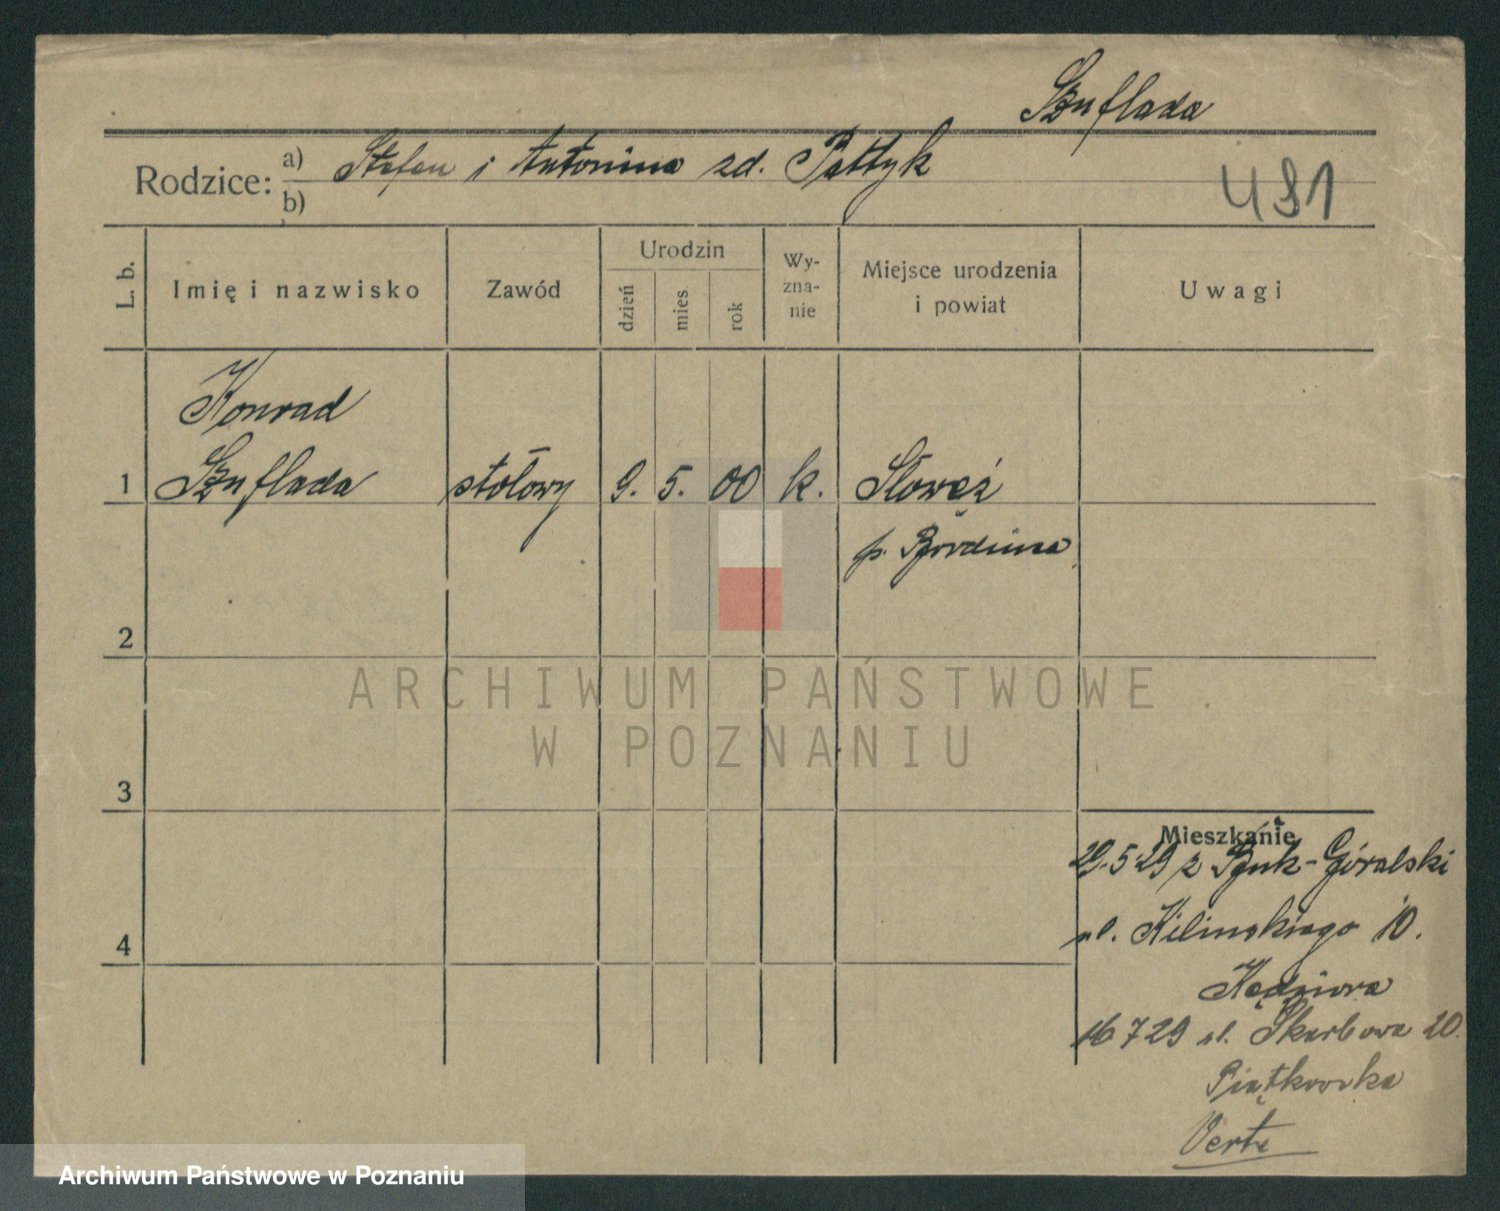 Szuflada
Rodzice: a) Stefan i Antonina zd. Pattyk
b)
481
L. b.
Imię i nazwisko
Zawód
Urodzin
dzień
mies.
rok
Wy-
zna-
nie
Miejsce urodzenia
i powiat
Uwagi
Konrad
1 Szuflada stołowy 9. 5. 00 k. Słowęź
p.
2
3
4
Mieszkanie
29.5.29 z Buk-Góralski
ul. Kilinskiego 10.
Kędziora
16 7 29 ul. Skarbowa 20.
Piątkowska
Verte
ARCHIWUM PAŃSTWOWE
W POZNANIU
Archiwum Państwowe w Poznaniu